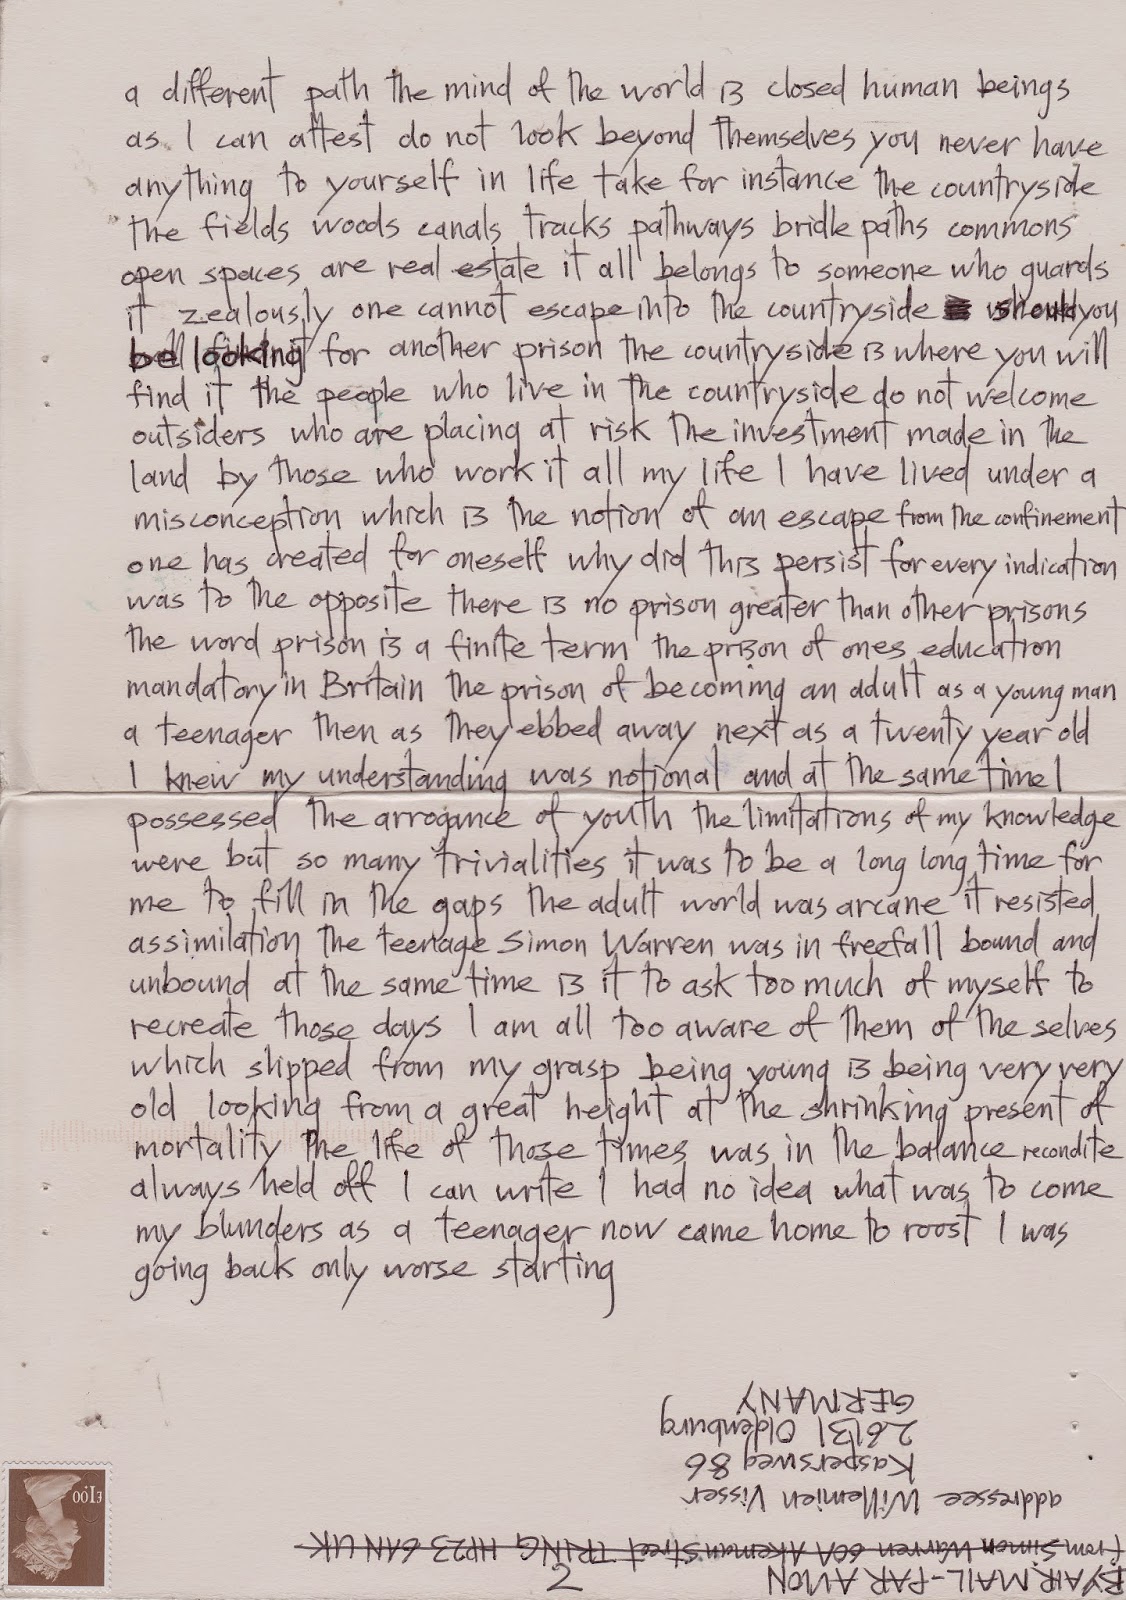 a different path the mind of the world is closed human beings
as I can attest do not look beyond themselves you never have
anything to yourself in life take for instance the countryside
the fields woods canals tracks pathways bridle paths commons
open spaces are real estate it all belongs to someone who guards
it zealously one cannot escape into the countryside should you
be looking for another prison the countryside is where you will
find it the people who live in the countryside do not welcome
outsiders who are placing at risk the investment made in the
land by those who work it all my life I have lived under a
misconception which is the notion of an escape from the confinement
one has created for oneself why did this persist for every indication
was to the opposite there is no prison greater than other prisons
the word prison is a finite term the prison of ones education
mandatory in Britain the prison of becoming an adult as a young man
a teenager then as they ebbed away next as a twenty year old
I knew my understanding was notional and at the same time I
possessed the arrogance of youth the limitations of my knowledge
were but so many trivialities it was to be a long long time for
me to fill in the gaps the adult world was arcane it resisted
assimilation the teenage Simon Warren was in freefall bound and
unbound at the same time is it to ask too much of myself to
recreate those days I am all too aware of them of the selves
which slipped from my grasp being young is being very very
old looking from a great height at the shrinking present of
mortality the life of those times was in the balance recondite
always held off I can write I had no idea what was to come
my blunders as a teenager now came home to roost I was
going back only worse starting
BY AIR MAIL - PAR AVION
2
from Simon Warren 60A Akeman Street TRING HP23 6AN UK
addressee Willemien Visser
Kaspersweg 86
26131 Oldenburg
GERMANY
£1.00